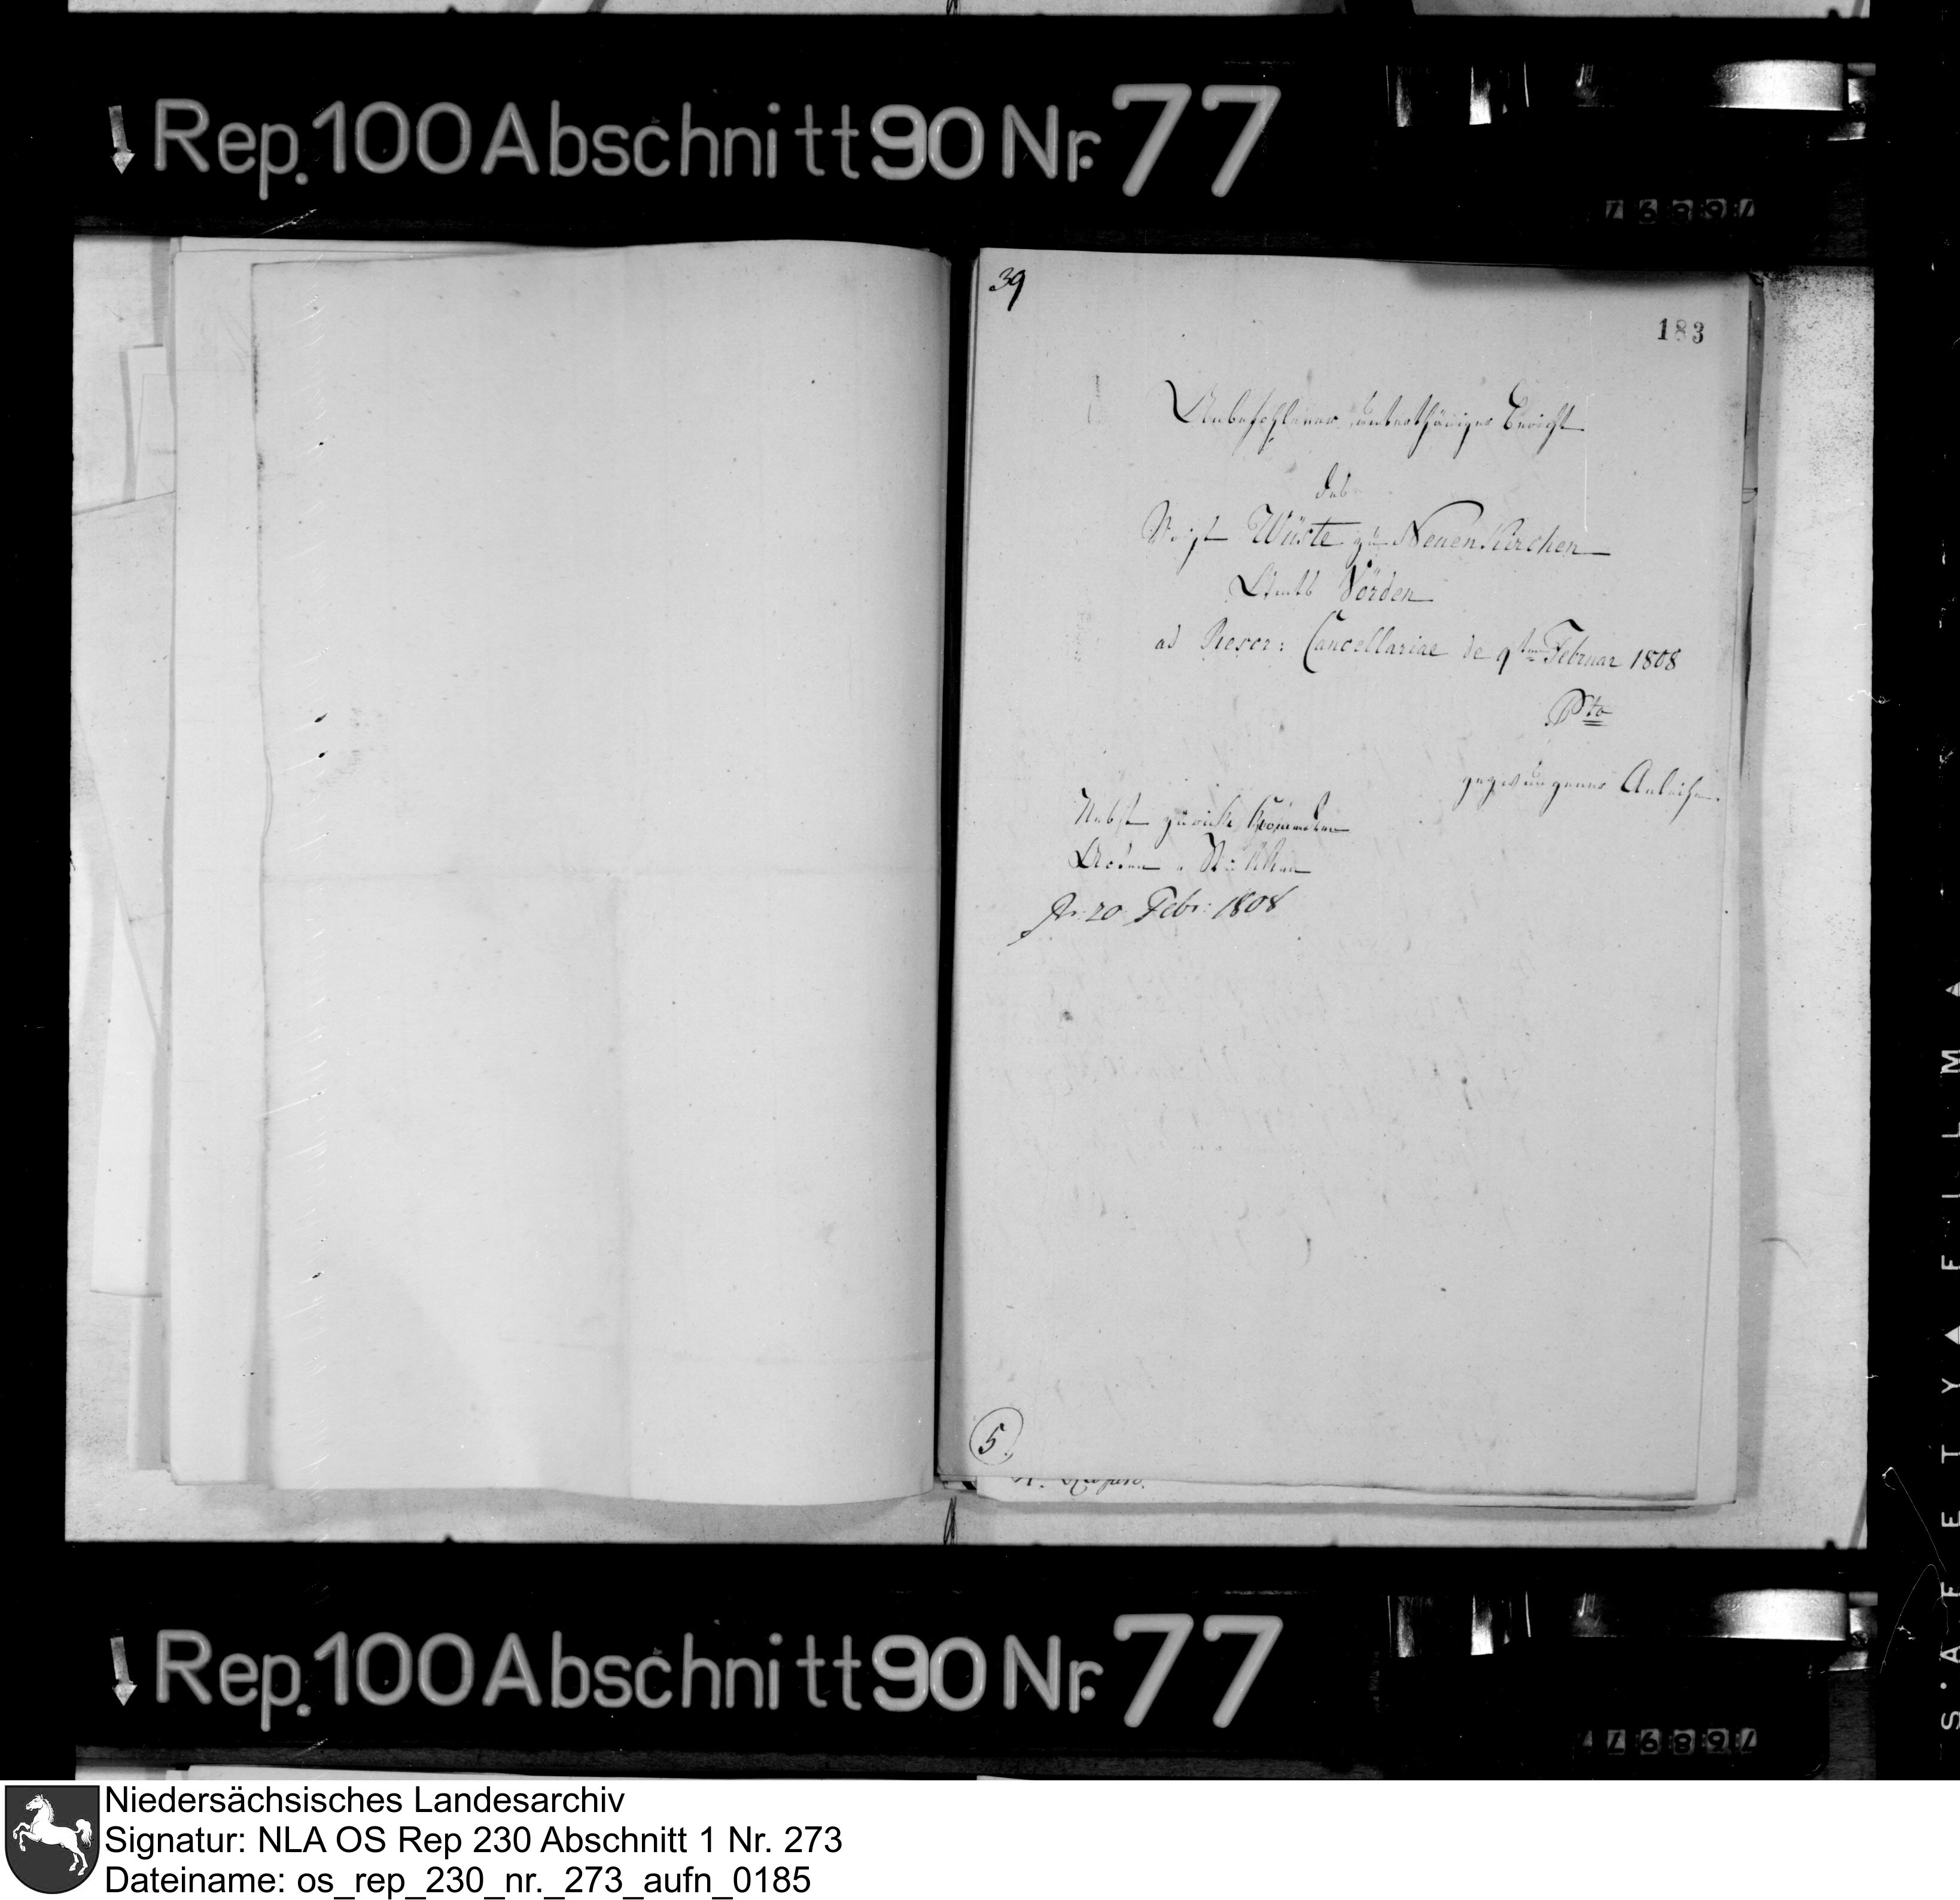 Rep. 100 Abschnitt 90 Nr. 77
39
183
Anbefohlener unterthäniger Bericht
des
Vogt Wüste zu Neuenkirchen
Amts Vörden
ad Rescr: Cancellariae de 9ten Februar 1808
Pto
gezwungener Anleihe.
Nebst zurück kommenden
Acten
Pr. 20 Febr: 1808
5
Rep. 100 Abschnitt 90 Nr. 77
SAFETY FILM
Niedersächsisches Landesarchiv
Signatur: NLA OS Rep 230 Abschnitt 1 Nr. 273
Dateiname: os_rep_230_nr._273_aufn_0185